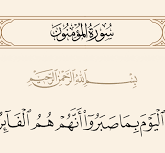 سُورَةُ المُؤْمِنُونَ
بِسْمِ اللَّهِ الرَّحْمَٰنِ الرَّحِيمِ
ٱلْيَوْمَ بِمَا صَبَرُوٓا۟ أَنَّهُمْ هُمُ